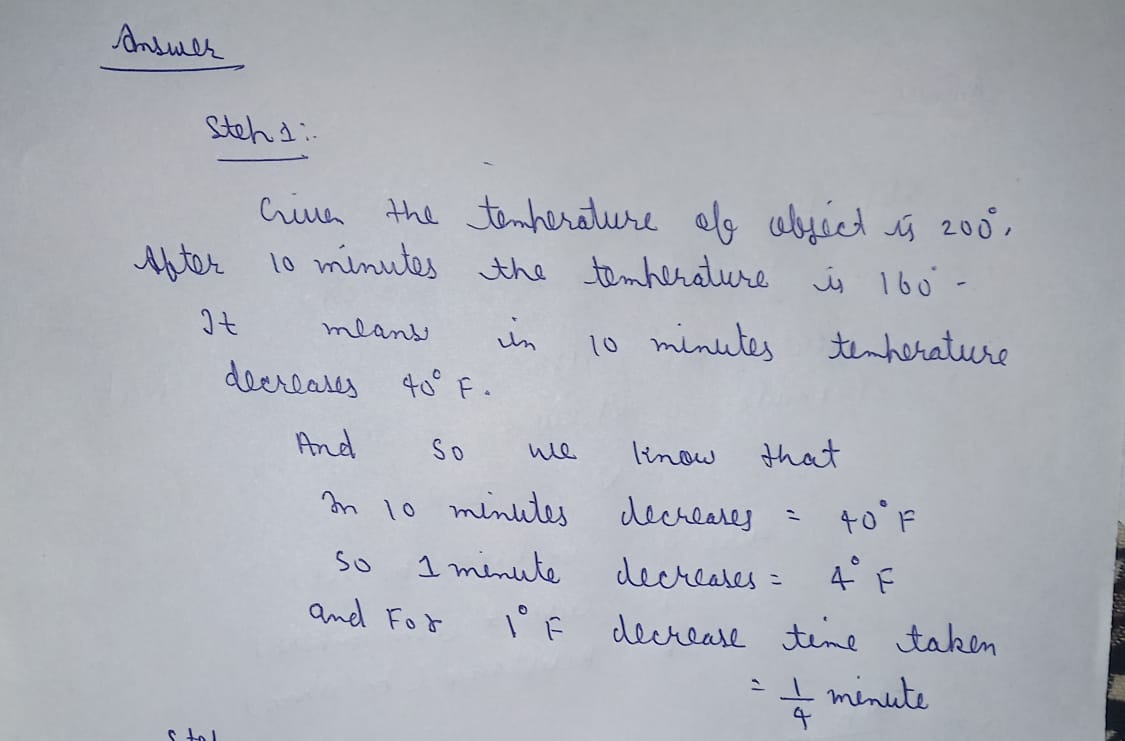 Answer
Step 1:-
Given the temperature of object is 200°,
After 10 minutes the temperature is 160° -
It means in 10 minutes temperature
decreases 40° F.
And so we know that
In 10 minutes decreases = 40° F
so 1 minute decreases = 4° F
and For 1° F decrease time taken
= 1/4 minute